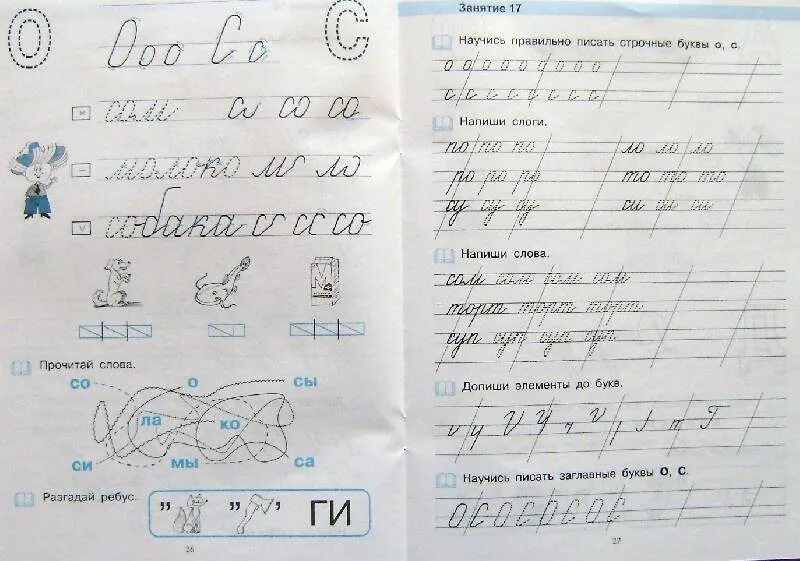 О С
Ооо Сс
сом с со со
молоко м ло
собака с со со
Прочитай слова.
со о сы
ла ко
си мы са
Разгадай ребус.
" " ' ГИ
26
Занятие 17
Научись правильно писать строчные буквы о, с.
о о о о о о о о о
с с с с с с с с
Напиши слоги.
по по по ло ло ло
ро ро ро то то то
су су су си си си
Напиши слова.
сом сом сом сом
торт торт торт
суп суп суп суп
Допиши элементы до букв.
Научись писать заглавные буквы О, С.
О С О С О С О С
27